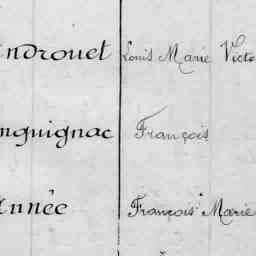 ndrouet Louis Marie Victo
nguignac François
nnée François Marie